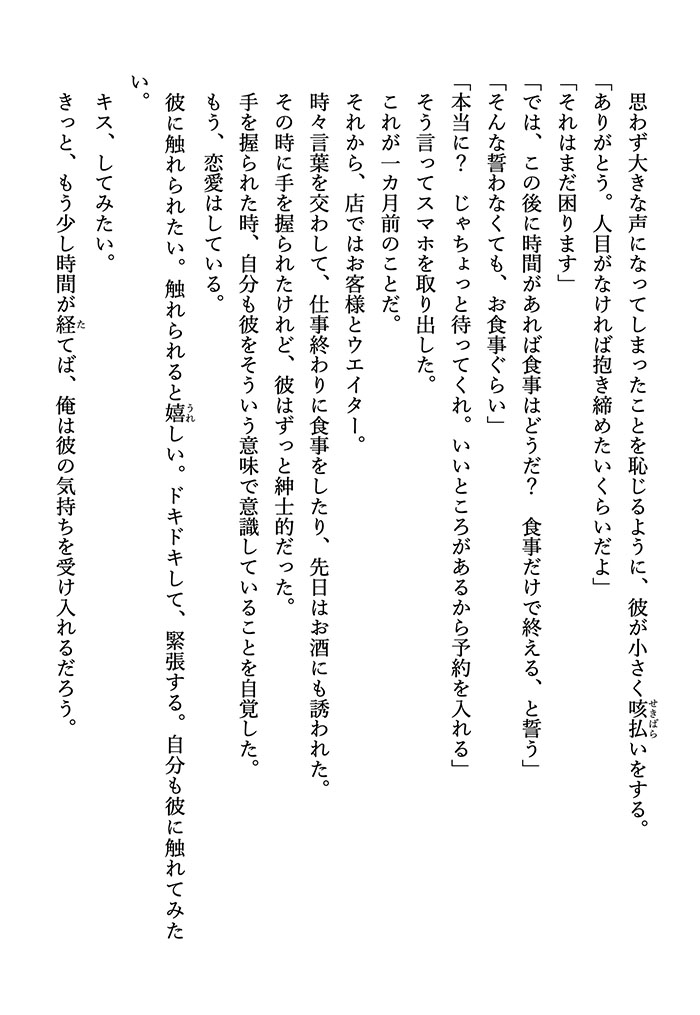 思わず大きな声になってしまったことを恥じるように、彼が小さく咳払いをする。
「ありがとう。人目がなければ抱き締めたいくらいだよ」
「それはまだ困ります」
「では、この後に時間があれば食事はどうだ？　食事だけで終える、と誓う」
「そんな誓わなくても、お食事ぐらい」
「本当に？　じゃちょっと待ってくれ。いいところがあるから予約を入れる」
　そう言ってスマホを取り出した。
　これが一カ月前のことだ。
　それから、店ではお客様とウエイター。
　時々言葉を交わして、仕事終わりに食事をしたり、先日はお酒にも誘われた。
　その時に手を握られたけれど、彼はずっと紳士的だった。
　手を握られた時、自分も彼をそういう意味で意識していることを自覚した。
　もう、恋愛はしている。
　彼に触れられたい。触れられると嬉しい。ドキドキして、緊張する。自分も彼に触れてみた
い。
　キス、してみたい。
　きっと、もう少し時間が経てば、俺は彼の気持ちを受け入れるだろう。
せきばら
うれ
た